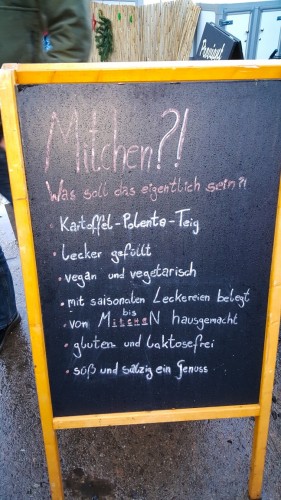 Prosecct
Mitchen?!
Was soll das eigentlich sein?!
• Kartoffel-Polenta-Teig
• Lecker gefüllt
• vegan und vegetarisch
• mit saisonalen Leckereien belegt
bis
• von MitcheN hausgemacht
• gluten- und laktosefrei
• süß und salzig ein Genuss